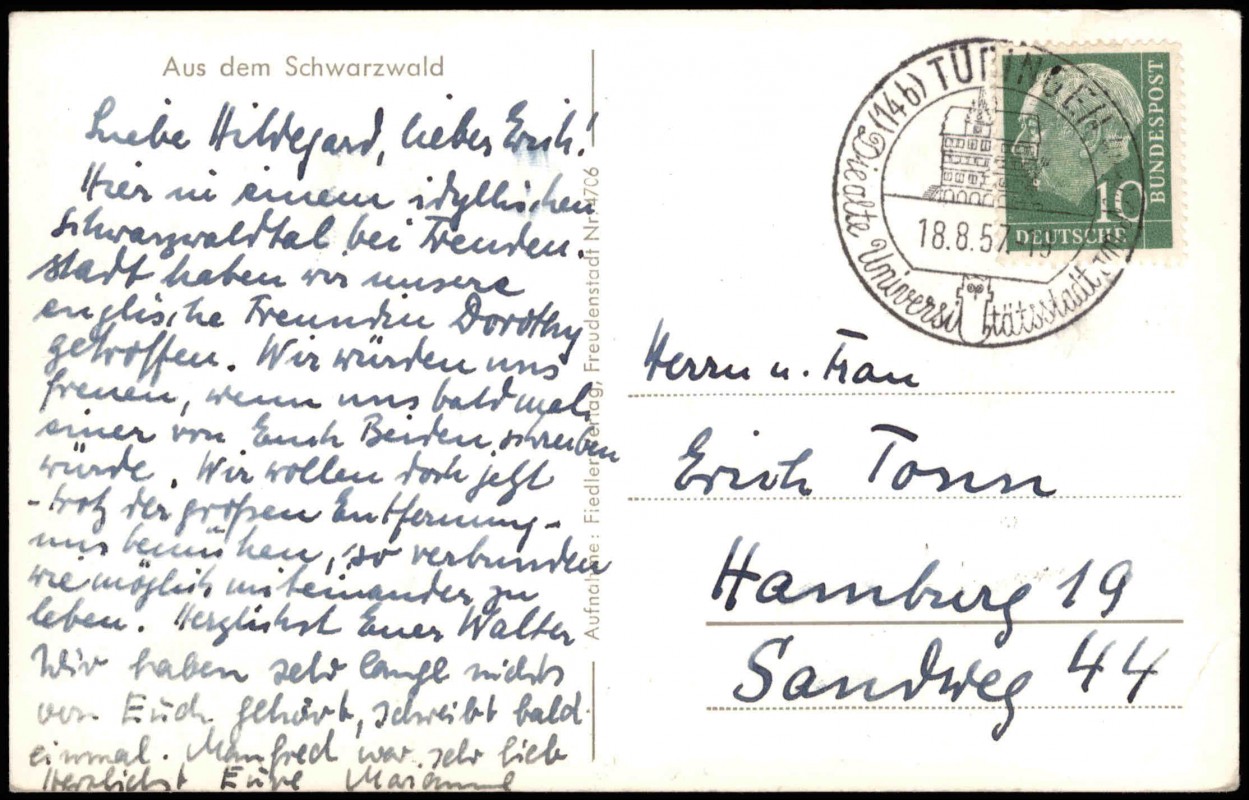 Aus dem Schwarzwald
Liebe Hildegard, lieber Erich!
Hier in einem idyllischen
Schwarzwaldtal bei Freuden-
stadt haben wir unsere
englische Freundin Dorothy
getroffen. Wir würden uns
freuen, wenn uns bald mal
einer von Euch Beiden schreiben
würde. Wir wollen doch jetzt
- trotz der großen Entfernung -
uns bemühen, so verbunden
wie möglich miteinander zu
leben. Herzlichst Euer Walter
Wir haben sehr lange nichts
von Euch gehört, schreibt bald
einmal. Manfred war sehr lieb
Herzlichst Eure Marianne
Aufnahme: Fiedler-Verlag, Freudenstadt Nr. 4706
(14b) TÜBINGEN
18.8.57
Die alte Universitätsstadt
BUNDESPOST
10
DEUTSCHE
Herrn u. Frau
Erich Tonn
Hamburg 19
Sandweg 44